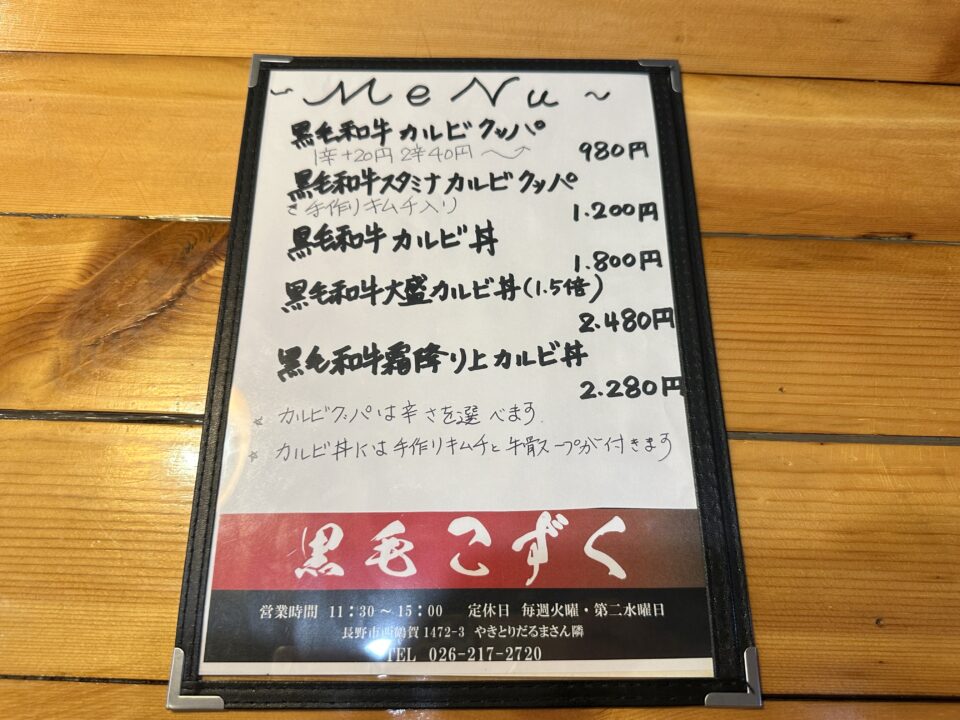 ~ MeNu ~
黒毛和牛カルビクッパ
1辛+20円 2辛40円 〜
980円
黒毛和牛スタミナカルビクッパ
手作りキムチ入り
1.200円
黒毛和牛カルビ丼
1.800円
黒毛和牛大盛カルビ丼(1.5倍)
2.480円
黒毛和牛霜降り上カルビ丼
2.280円
☆ カルビクッパは辛さを選べます
☆ カルビ丼には手作りキムチと牛骨スープが付きます
黒毛こずく
営業時間 11:30～15:00 定休日 毎週火曜・第二水曜日
長野市西鶴賀1472-3 やきとりだるまさん隣
TEL 026-217-2720